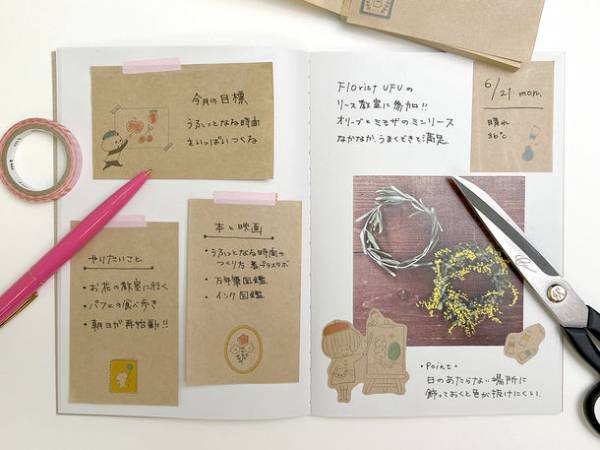 今月の目標
うるっとなる時間
をいっぱいつくる
やりたいこと
・お花の教室に行く
・パフェの食べ歩き
・朝ヨガ再始動!!
本と映画
・うるっとなる時間の
つくり方
・万年筆図鑑
・インク図鑑
Florist UFUの
リース教室に参加!!
オリーブとミモザのミニリース
なかなか、うまくできて満足
6/21 mon.
晴れ
36℃
・Point・
日のあたらない場所に
飾っておくと色が抜けにくい。